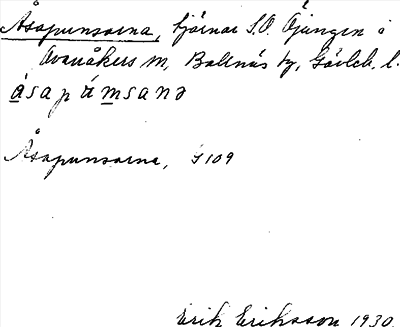 Åsapunsarna, tjärnar S.O. Öjungen å
Ovanåkers m, Bollnäs tg, Gävleb. l.
ásapámsanə
Åsapunsarna, G 109
Erik Eriksson 1930.